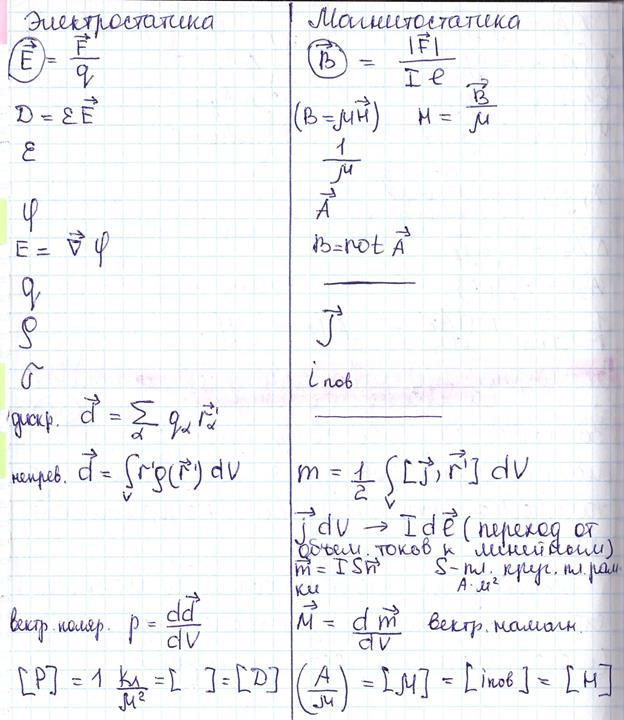 Электростатика
E⃗ = F⃗/q
D = εE⃗
ε
φ
E = ∇⃗ φ
q
ρ
σ
дискр. d⃗ = ∑_α q_α r⃗'_α
непрев. d⃗ = ∫_V r⃗'ρ(r⃗') dV
вектр. поляр. p = dd⃗/dV
[P] = 1 Кл/м² = [ ] = [D]
Магнитостатика
B⃗ = |F⃗|/Iℓ
(B = μH⃗) H = B⃗/μ
1/μ
A⃗
B = rot A⃗
j⃗
i пов
m = 1/2 ∫_V [j⃗, r⃗'] dV
j⃗ dV → I dℓ⃗ (переход от
объем. токов к линейным)
m⃗ = ISn⃗ S - пл. круг. пл. рам
ки А·м²
M⃗ = dm⃗/dV вектр. намагн.
(А/м) = [M] = [iпов] = [H]